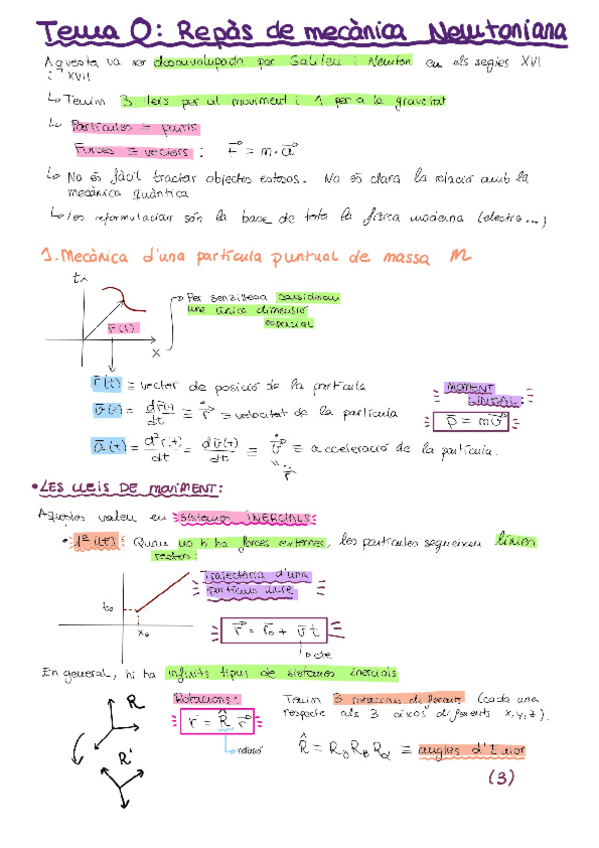 Tema 0: Repàs de mecànica Newtoniana
Aquesta va ser desenvolupada per Galileu i Newton en els segles XVI
i XVII
↳ Tenim 3 lleis per al moviment i 1 per a la gravetat
↳ Partícules ≡ punts
Forces ≡ vectors : F⃗ = m·a⃗
↳ No és fàcil tractar objectes extensos. No és clara la relació amb la
mecànica quàntica
↳ les reformulacions són la base de tota la física moderna (electro...)
1. Mecànica d'una partícula puntual de massa m
t
Per senzillesa considerem
una única dimensió
espacial
r⃗(t)
x
r⃗(t) ≡ vector de posició de la partícula
v⃗(t) = dr⃗(t)/dt ≡ ṙ⃗ ≡ velocitat de la partícula
MOMENT
LINEAL:
p⃗ = mv⃗
a⃗(t) = d²r⃗(t)/dt = dv⃗(t)/dt ≡ v̇⃗ ≡ acceleració de la partícula.
r̈
• LES LLEIS DE MOVIMENT:
Aquestes valen en sistemes INERCIALS
• 1ª llei: Quan no hi ha forces externes, les partícules segueixen línies
rectes:
Trajectòria d'una
partícula lliure
t₀
x₀
r⃗ = r⃗₀ + v⃗ t
cte
En general, hi ha infinits tipus de sistemes inercials
R
R'
Rotacions:
r⃗ = R̂ r⃗
rotació
Tenim 3 rotacions diferents (cada una
respecte als 3 eixos diferents x,y,z).
≡ angles d'Euler
(3)